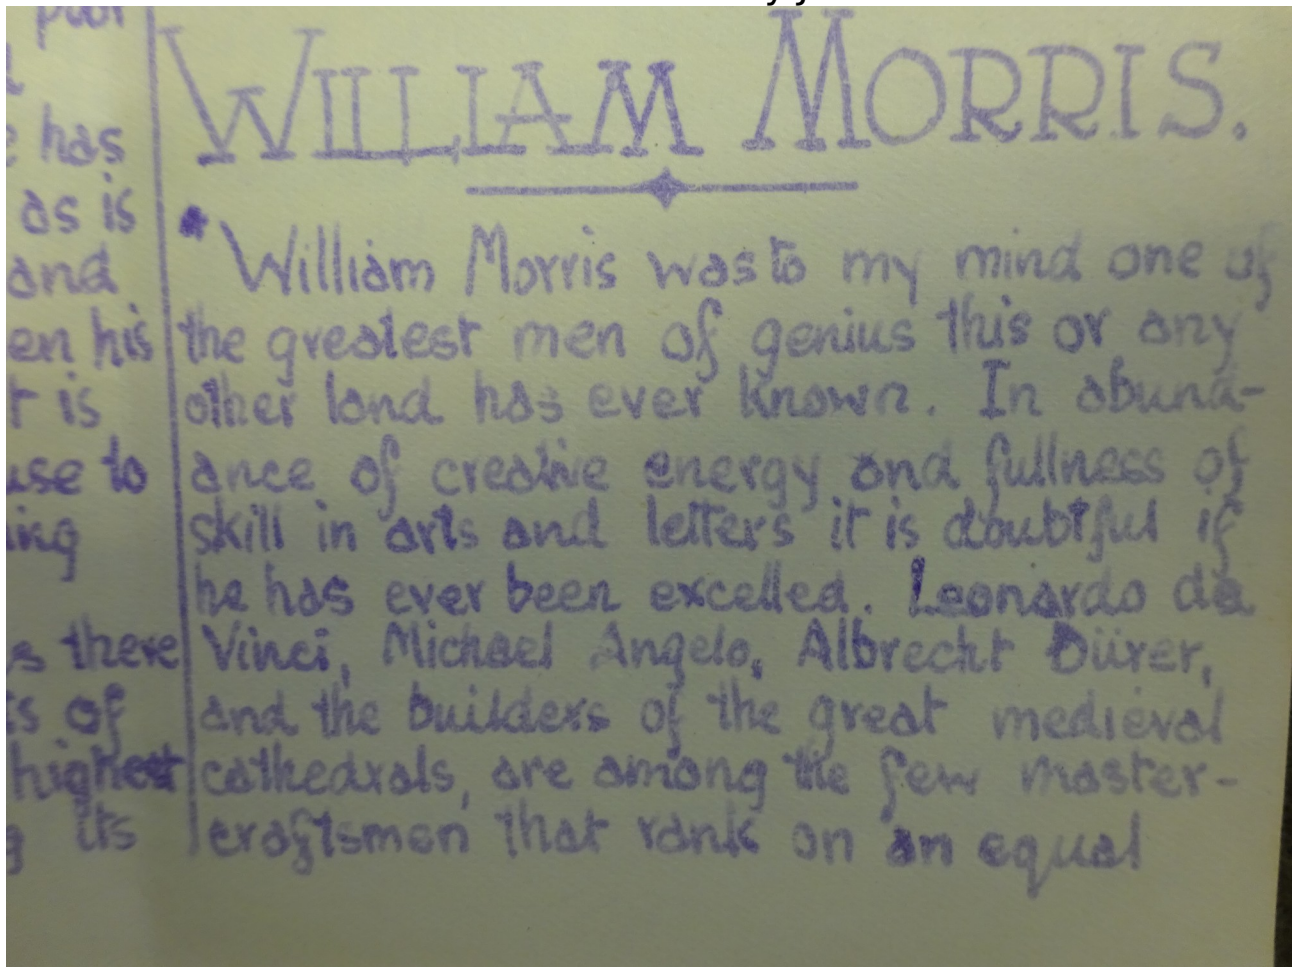 poor
has
as is
and
en his
t is
use to
ing
s there
ts of
highest
g its
WILLIAM MORRIS.
"William Morris was to my mind one of
the greatest men of genius this or any
other land has ever known. In abund-
ance of creative energy and fullness of
skill in arts and letters it is doubtful if
he has ever been excelled. Leonardo da
Vinci, Michael Angelo, Albrecht Dürer,
and the builders of the great medieval
cathedrals, are among the few master-
craftsmen that rank on an equal